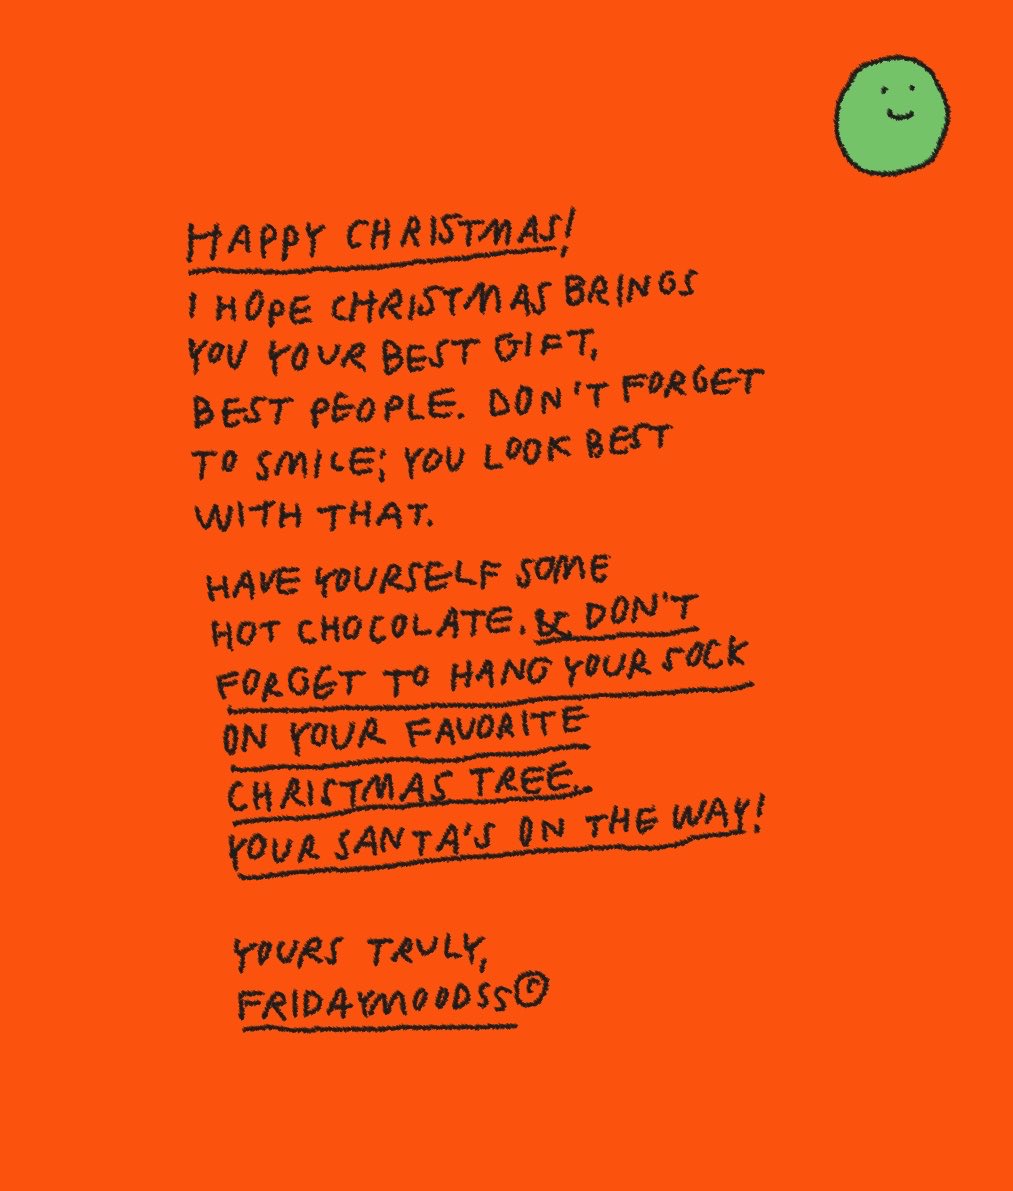 HAPPY CHRISTMAS!
I HOPE CHRISTMAS BRINGS
YOU YOUR BEST GIFT,
BEST PEOPLE. DON'T FORGET
TO SMILE; YOU LOOK BEST
WITH THAT.
HAVE YOURSELF SOME
HOT CHOCOLATE. & DON'T
FORGET TO HANG YOUR SOCK
ON YOUR FAVORITE
CHRISTMAS TREE.
YOUR SANTA'S ON THE WAY!
YOURS TRULY,
FRIDAYMOODSS©